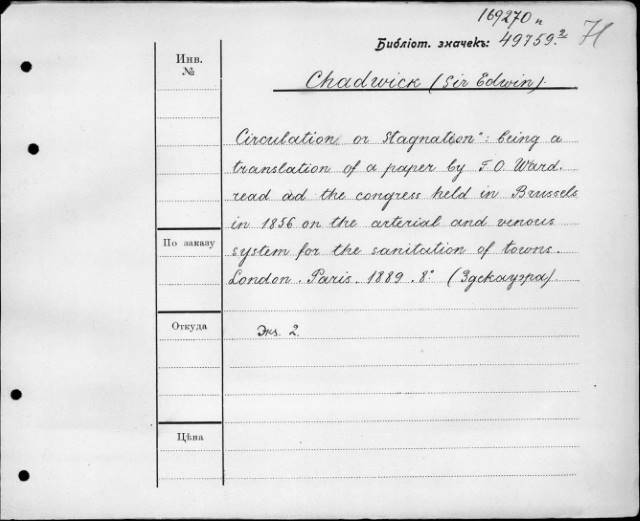 169270 n
Библіот. значекъ: 49759.² 71
Инв.
№
Chadwick (Sir Edwin).
Circulation or Stagnation": being a
translation of a paper by F.O. Ward.
read ad the congress held in Brussels
in 1856 on the arterial and venous
system for the sanitation of towns.
London. Paris. 1889. 8.° (Эдскауэра)
По заказу
Откуда
Экз. 2.
Цѣна